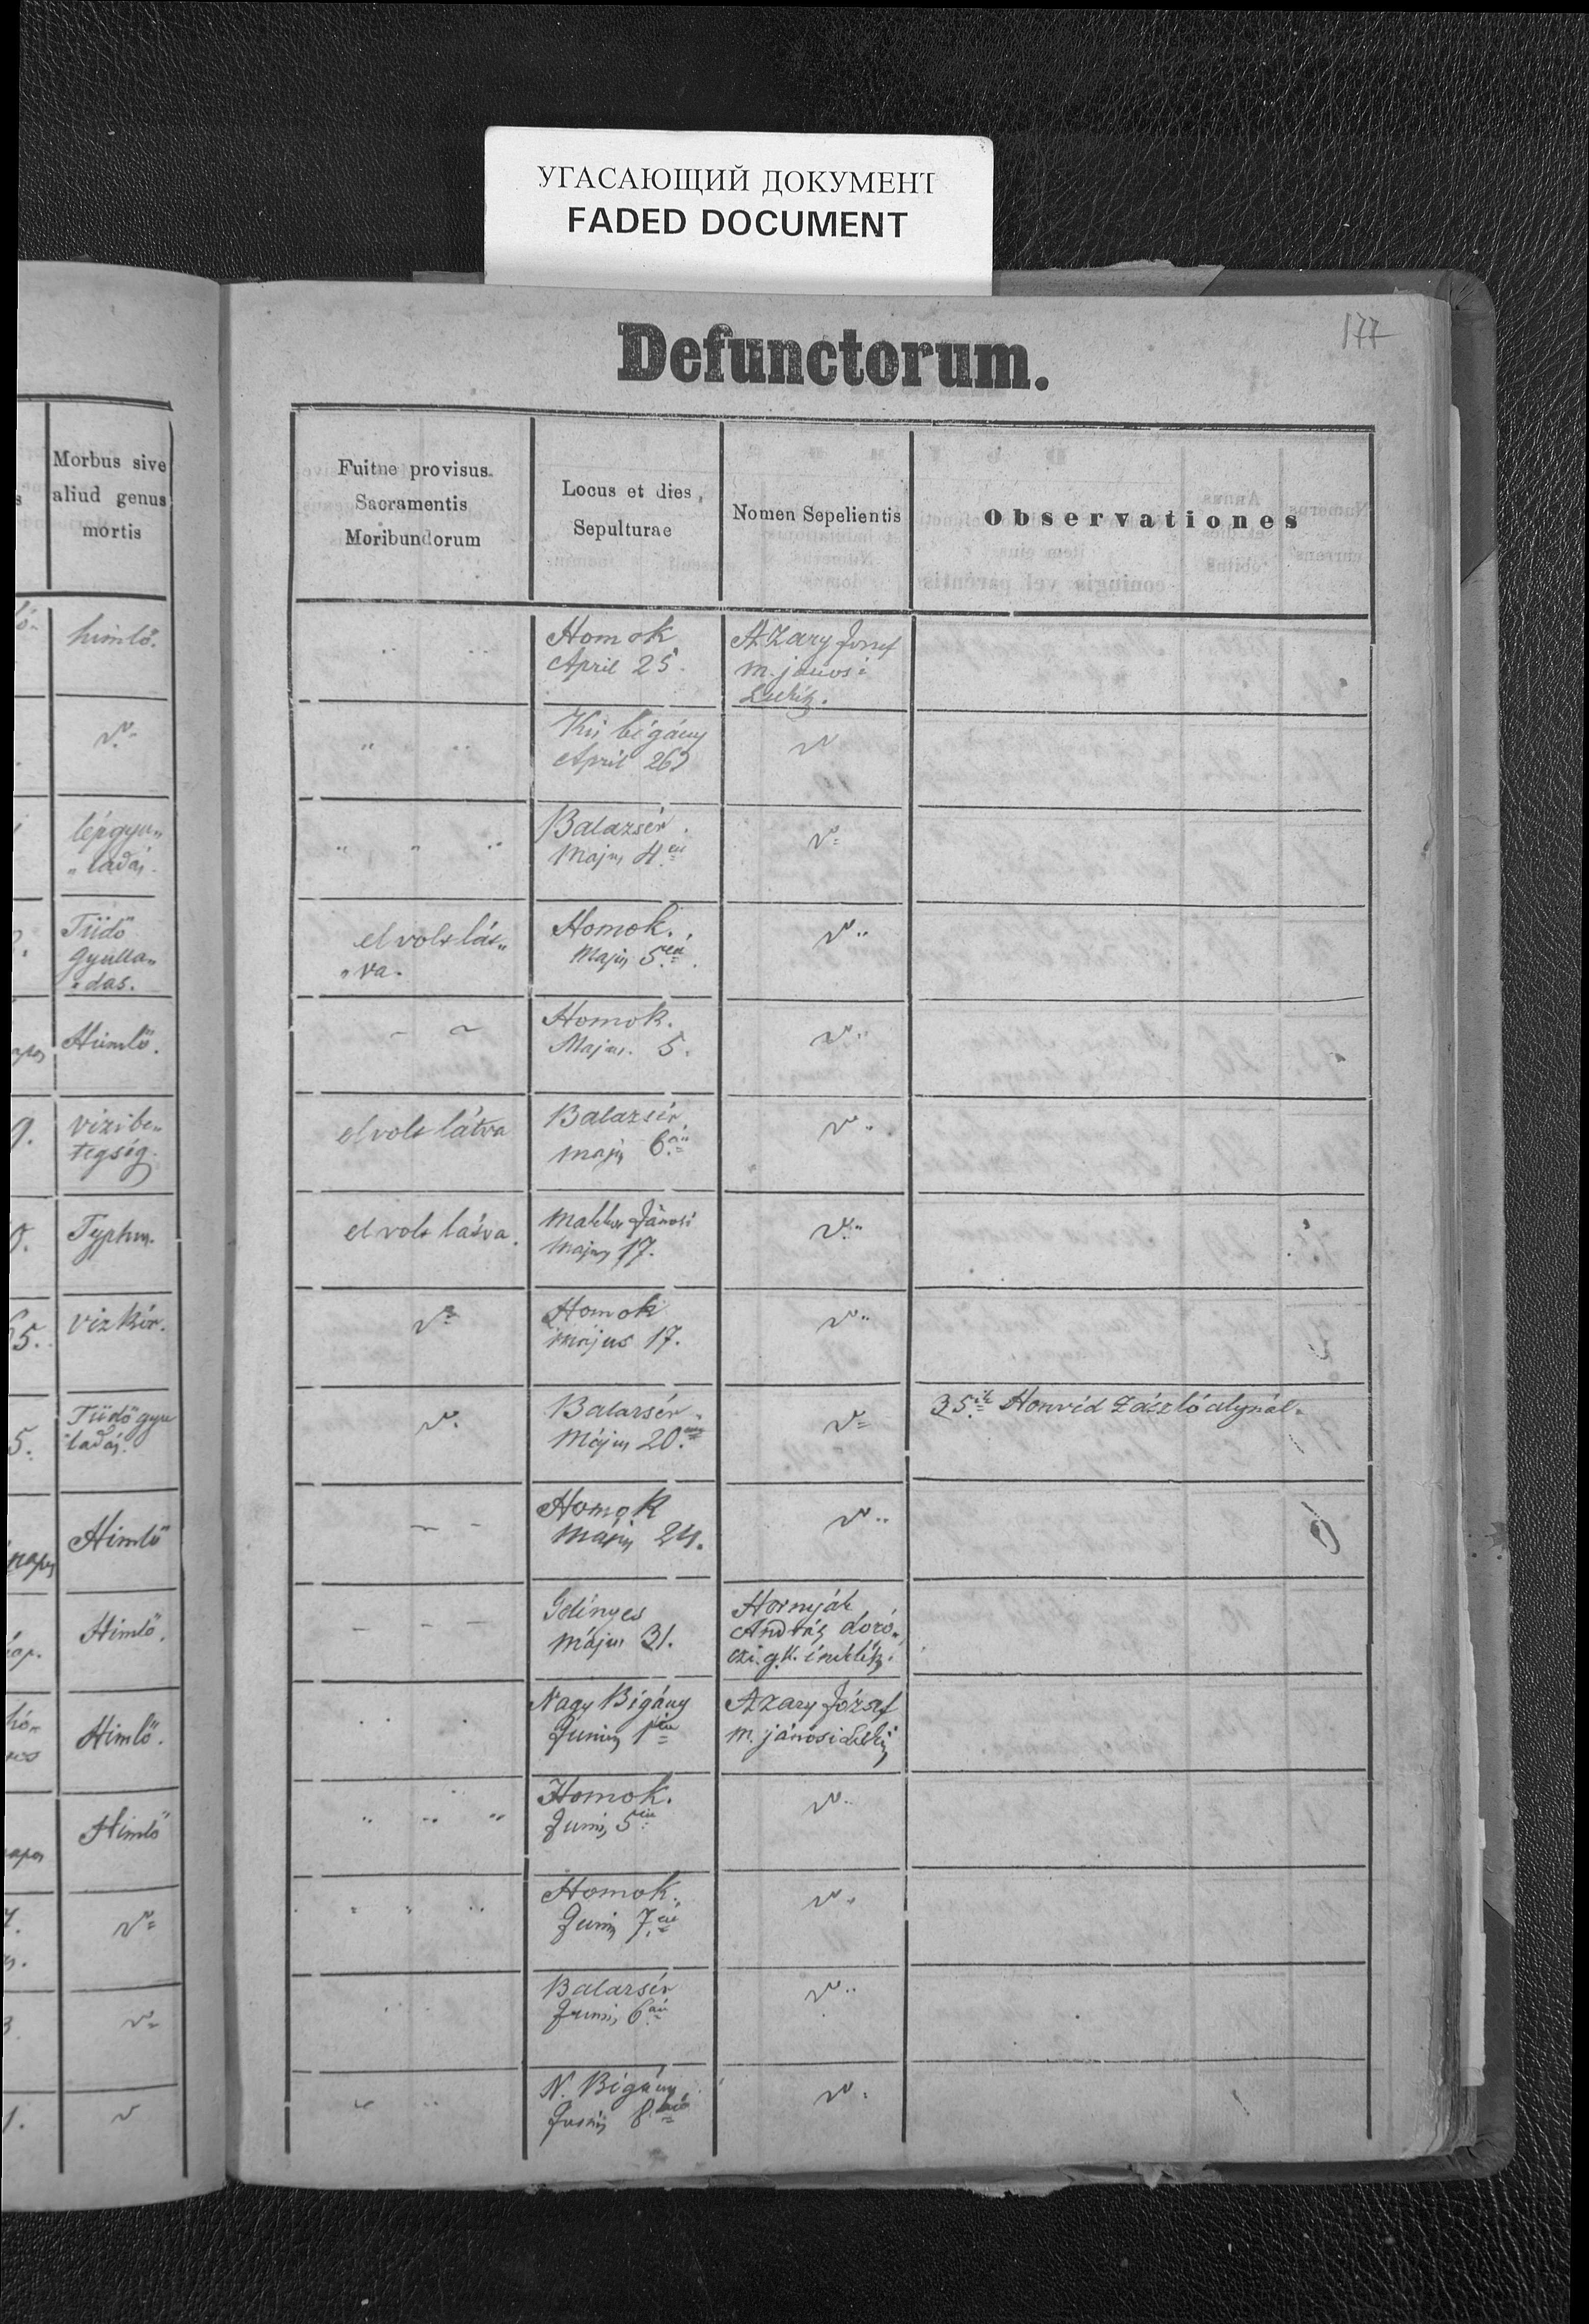 УГАСАЮЩИЙ ДОКУМЕНТ
FADED DOCUMENT
Defunctorum.
177
Morbus sive
aliud genus
mortis
Fuitne provisus
Sacramentis
Moribundorum
Locus et dies
Sepulturae
Nomen Sepelientis
Observationes
himlő.
Homok
April 25.
Azary Jossef
m. jánosi
Lelkész.
Kis bigány
April 26
lépgyu„
„ladás.
Balazsér.
Majus 4én
Tüdő
gyulla„
„dás.
el volt lát„
„va.
Homok.
Majus 5én
Himlő.
Homok.
Majus. 5.
9.
vizibe„
tegség.
el volt látva
Balazsér.
majus 6án
Typhus.
el volt látva.
Makkos Jánosi
Majus 17.
65.
vizkór.
Homok
május 17.
5.
Tüdőgyu
ladás.
Balazsér.
Május 20.
35ik Honvéd Zászlóalynál.
Himlő
Homok
Május 24.
Himlő.
Gelényes
május 31.
Hornyák
András doró„
czi g.k. énekész.
Himlő.
Nagy Bigány
Junius 1én
Azary József
m. jánosi Lelkész
Himlő
Homok.
Junius 5én
Homok.
Junius 7én
Balazsér
Junius 6án
N. Bigány
Junius 8